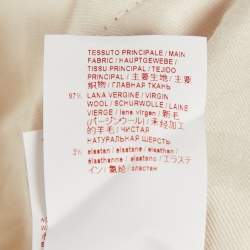 TESSUTO PRINCIPALE / MAIN
FABRIC / HAUPTGEWEBE /
TISSU PRINCIPAL / TEJIDO
PRINCIPAL / 主要生地 / 主要
织物 / ГЛАВНАЯ ТКАНЬ
97% LANA VERGINE / VIRGIN
WOOL / SCHURWOLLE / LAINE
VIERGE / lana virgen / 新毛
(バージンウール) / 未经加工
的羊毛 / ЧИСТАЯ
НАТУРАЛЬНАЯ ШЕРСТЬ
3% elastan / elastane / elasthan /
élasthanne / elastano / エラステ
イン / 氨纶 / эластан